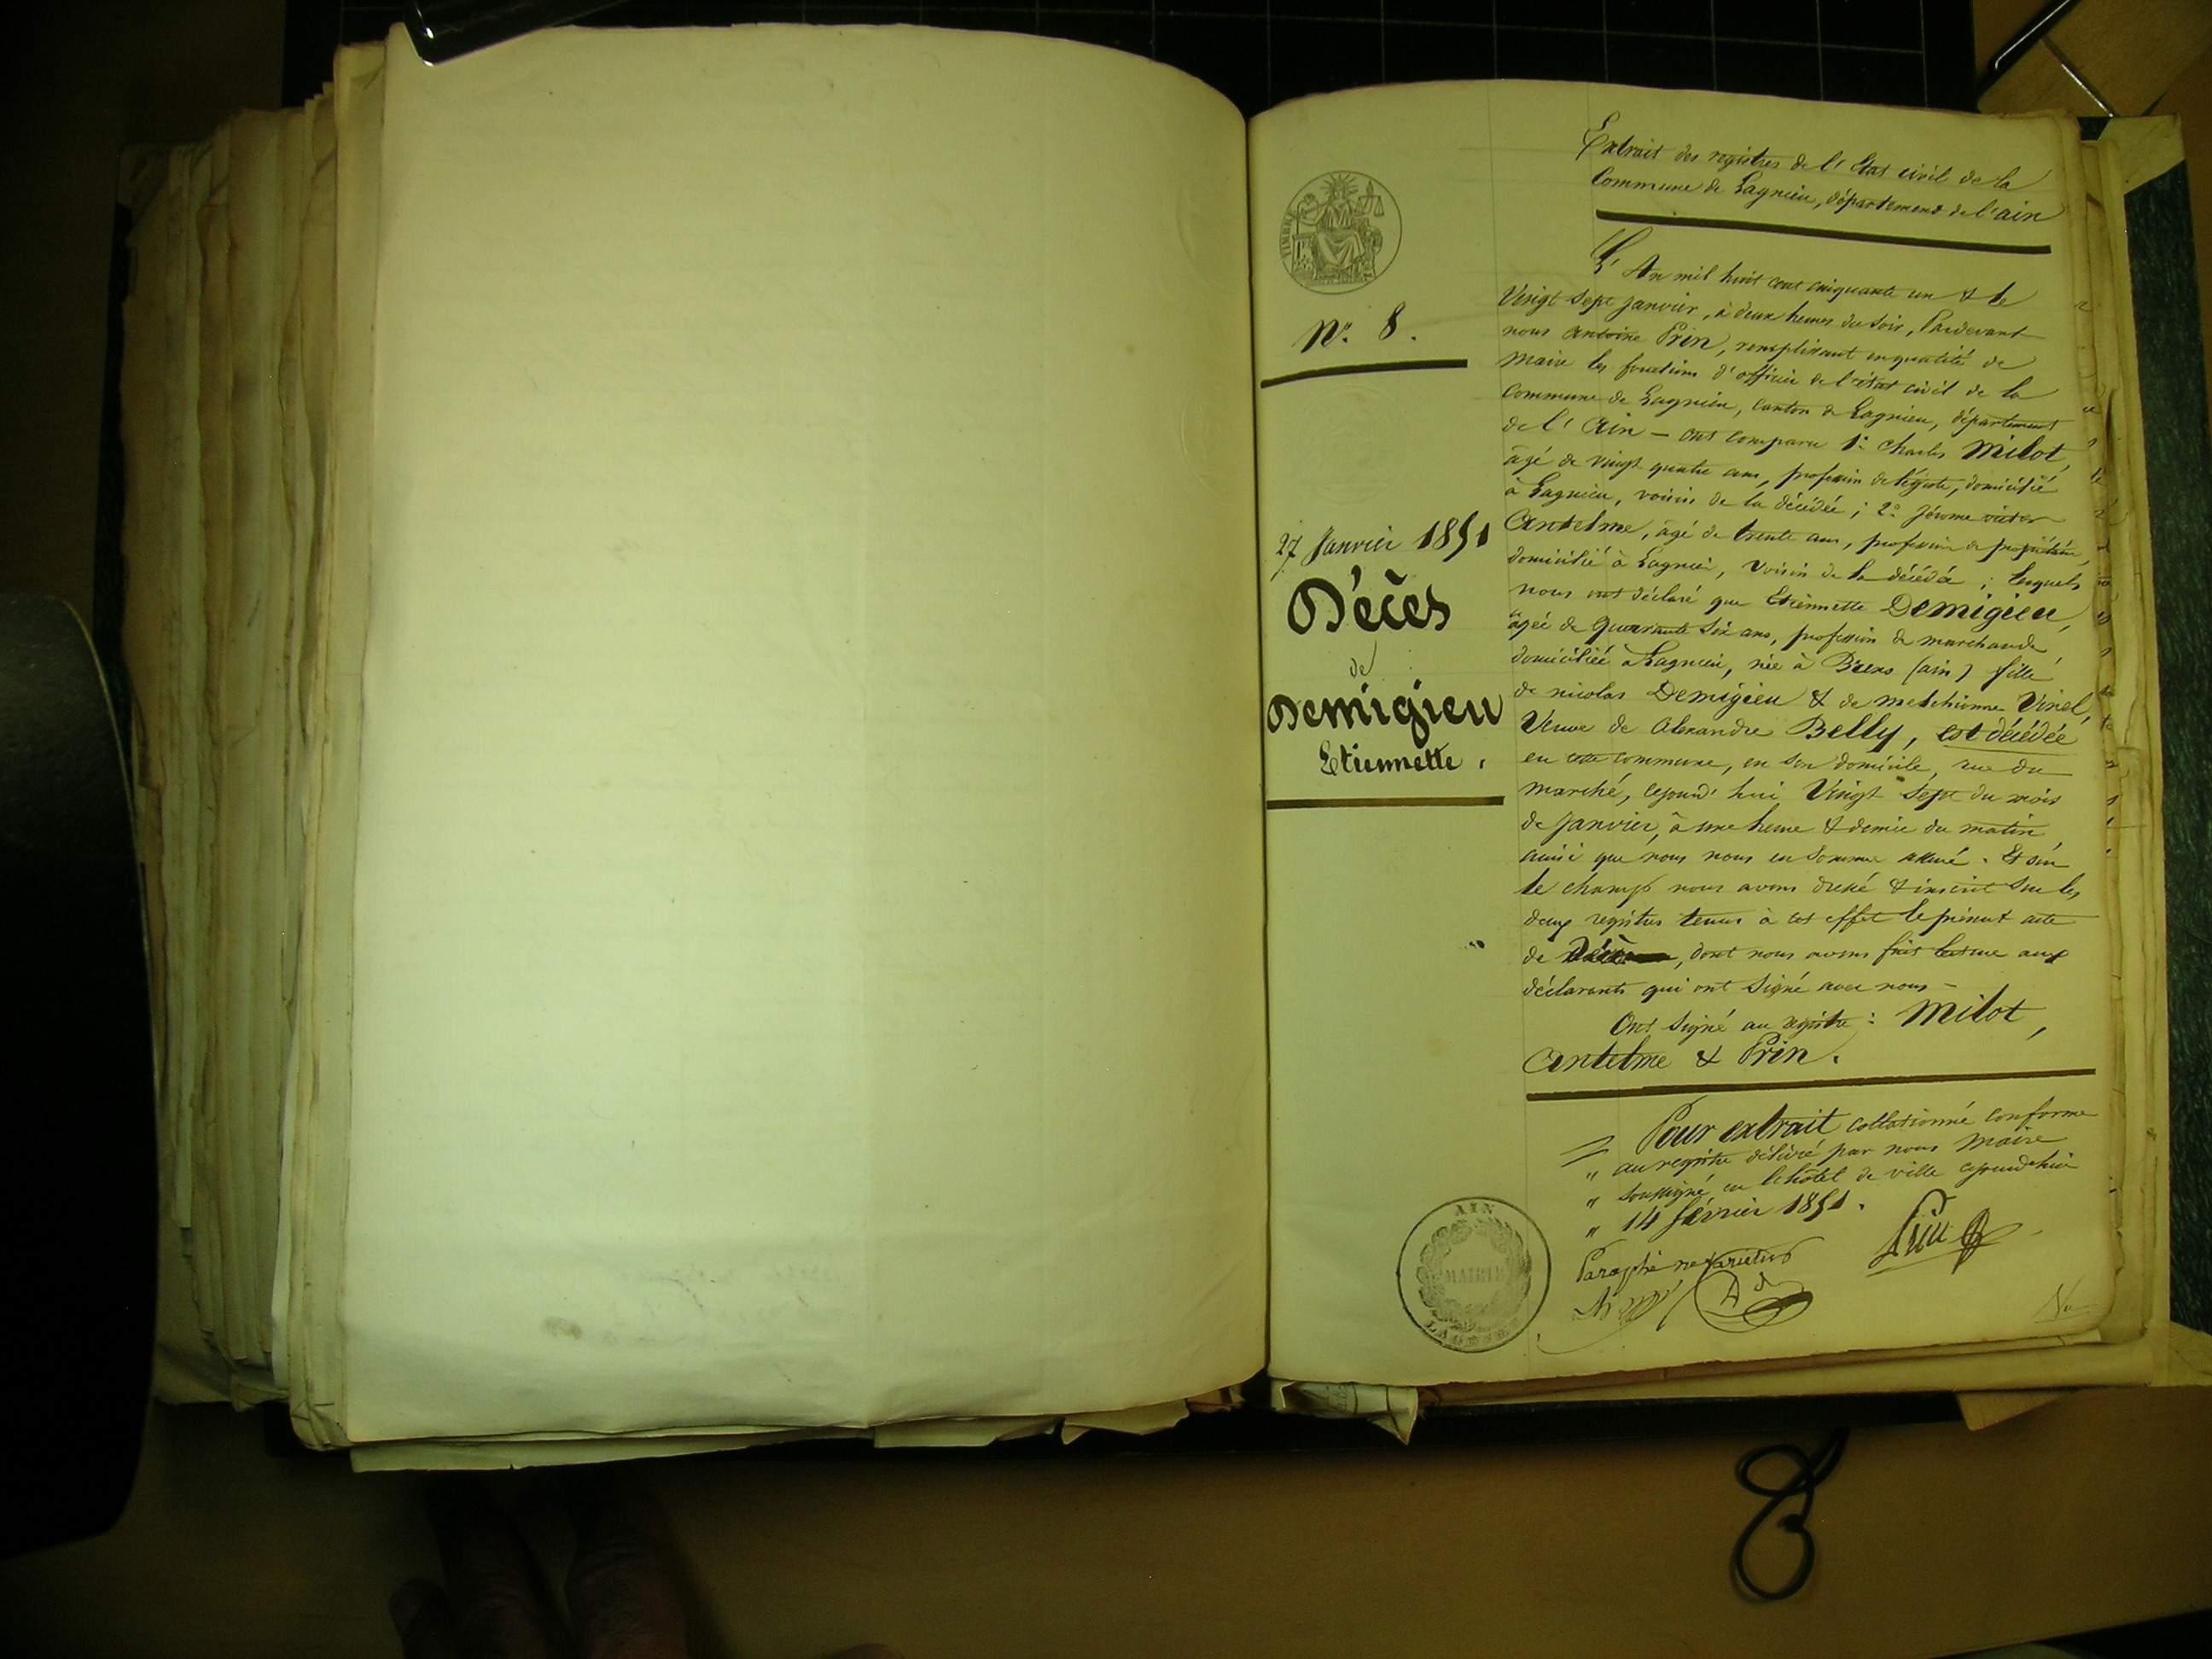 Extrait des registres de l'Etat civil de la
Commune de Lagnieu, département de l'ain
TIMBRE
N°. 8.
27 Janvier 1851
Décès
de
Demigieu
Etiennette.
L'An mil huit cent cinquante un & le
Vingt Sept Janvier, à deux heures du soir, Pardevant
nous Antoine Prin, remplissant en qualité de
Maire les fonctions d'officier de l'état civil de la
Commune de Lagnieu, canton de Lagnieu, département
de l'Ain — ont comparu 1° Charles Milot,
âgé de vingt quatre ans, profession de légiste, domicilié
à Lagnieu, voisin de la décédée; 2° Jérome victor
Antelme, âgé de trente ans, profession de propriétaire,
domicilié à Lagnieu, Voisin de la décédée; lesquels
nous ont déclaré que Etiennette Demigieu,
âgée de Quarante Six ans, profession de marchande,
domiciliée à Lagnieu, née à Brens (ain) fille
de nicolas Demigieu & de Melchionne Vinel,
Veuve de Alexandre Belly, est décédée
en cette commune, en son domicile, rue du
Marché, cejourd'hui Vingt Sept du mois
de Janvier, à une heure & demie du matin
ainsi que nous nous en sommes assuré. Et sur
le champ nous avons dressé & inscrit sur les
deux registres tenus à cet effet le présent acte
de Décès, dont nous avons fait lecture aux
déclarants qui ont signé avec nous —
Ont signé au registre: Milot,
Antelme & Prin.
Pour extrait collationné conforme
" au registre délivré par nous Maire
" soussigné, en l'hôtel de ville cejourd'hui
" 14 février 1851.
Prin
Paraphé ne varietur
AIN
MAIRIE